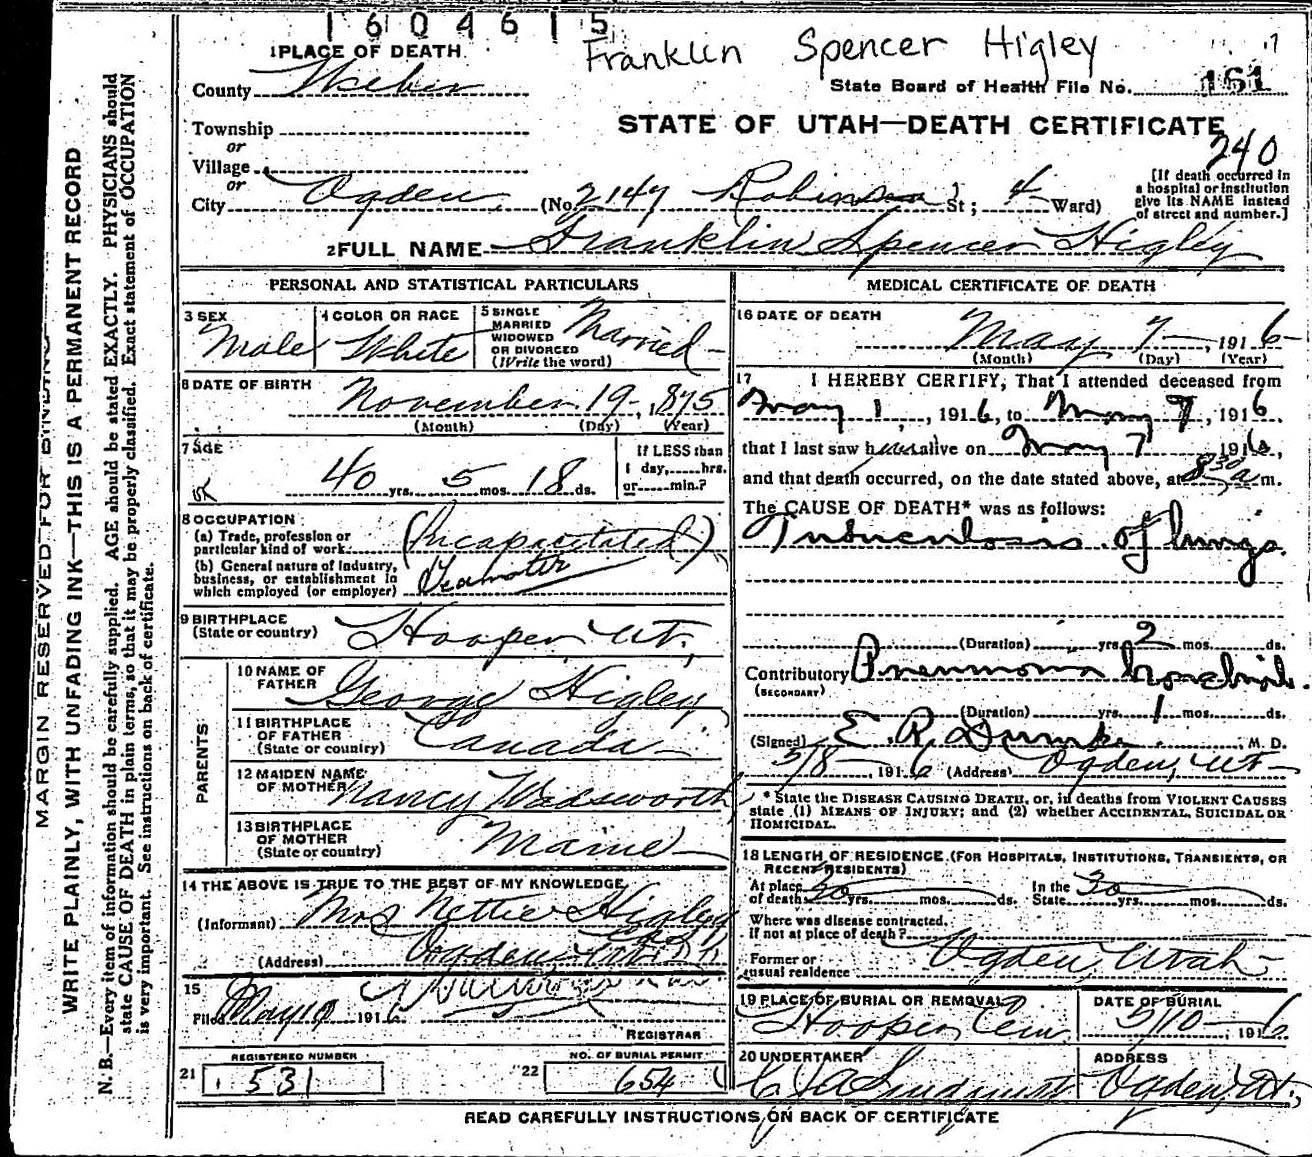 1604615
Franklin Spencer Higley
1 PLACE OF DEATH
County Weber
State Board of Health File No. 161
Township
or
Village
or
STATE OF UTAH—DEATH CERTIFICATE
240
City Ogden (No. 2147 Robinson St; 4 Ward)
[If death occurred in
a hospital or institution
give its NAME instead
of street and number.]
2 FULL NAME Franklin Spencer Higley
PERSONAL AND STATISTICAL PARTICULARS
3 SEX
Male
4 COLOR OR RACE
White
5 SINGLE
MARRIED
WIDOWED
OR DIVORCED
(Write the word)
Married
6 DATE OF BIRTH
November 19, 1875
(Month) (Day) (Year)
7 AGE
40 yrs. 5 mos. 18 ds.
If LESS than
1 day,......hrs.
or......min.?
8 OCCUPATION
(a) Trade, profession or
particular kind of work (Incapacitated)
(b) General nature of Industry,
business, or establishment in
which employed (or employer) Teamster
9 BIRTHPLACE
(State or country) Hooper, Ut.
PARENTS
10 NAME OF
FATHER George Higley
11 BIRTHPLACE
OF FATHER
(State or country) Canada
12 MAIDEN NAME
OF MOTHER Nancy Wadsworth
13 BIRTHPLACE
OF MOTHER
(State or country) Maine
14 THE ABOVE IS TRUE TO THE BEST OF MY KNOWLEDGE
(Informant) Mrs Nettie Higley
(Address) Ogden Utah
15
Filed May 10 1916
REGISTRAR
REGISTERED NUMBER
21 531
NO. OF BURIAL PERMIT
22 654
MEDICAL CERTIFICATE OF DEATH
16 DATE OF DEATH
May 7, 1916
(Month) (Day) (Year)
17 I HEREBY CERTIFY, That I attended deceased from
May 1, 1916, to May 7, 1916
that I last saw him alive on May 7 1916,
and that death occurred, on the date stated above, at 8 30 a m.
The CAUSE OF DEATH* was as follows:
Tuberculosis of lungs
(Duration) yrs. 2 mos. ds.
Contributory Pneumonia bronchial
(SECONDARY)
(Duration) yrs. 1 mos. ds.
(Signed) E. R. Dumke, M. D.
5/8 1916 (Address) Ogden, Ut
* State the DISEASE CAUSING DEATH, or, in deaths from VIOLENT CAUSES
state (1) MEANS OF INJURY; and (2) whether ACCIDENTAL, SUICIDAL OR
HOMICIDAL.
18 LENGTH OF RESIDENCE (FOR HOSPITALS, INSTITUTIONS, TRANSIENTS, OR
RECENT RESIDENTS)
At place
of death 20 yrs. mos. ds.
In the
State 30 yrs. mos. ds.
Where was disease contracted
If not at place of death?
Former or
usual residence Ogden, Utah
19 PLACE OF BURIAL OR REMOVAL
Hooper, Cem.
DATE OF BURIAL
5/10 1916
20 UNDERTAKER
Lindquist
ADDRESS
Ogden, Ut.
READ CAREFULLY INSTRUCTIONS ON BACK OF CERTIFICATE
MARGIN RESERVED FOR BINDING
WRITE PLAINLY, WITH UNFADING INK—THIS IS A PERMANENT RECORD
N. B.—Every item of information should be carefully supplied. AGE should be stated EXACTLY. PHYSICIANS should
state CAUSE OF DEATH in plain terms, so that it may be properly classified. Exact statement of OCCUPATION
is very important. See instructions on back of certificate.